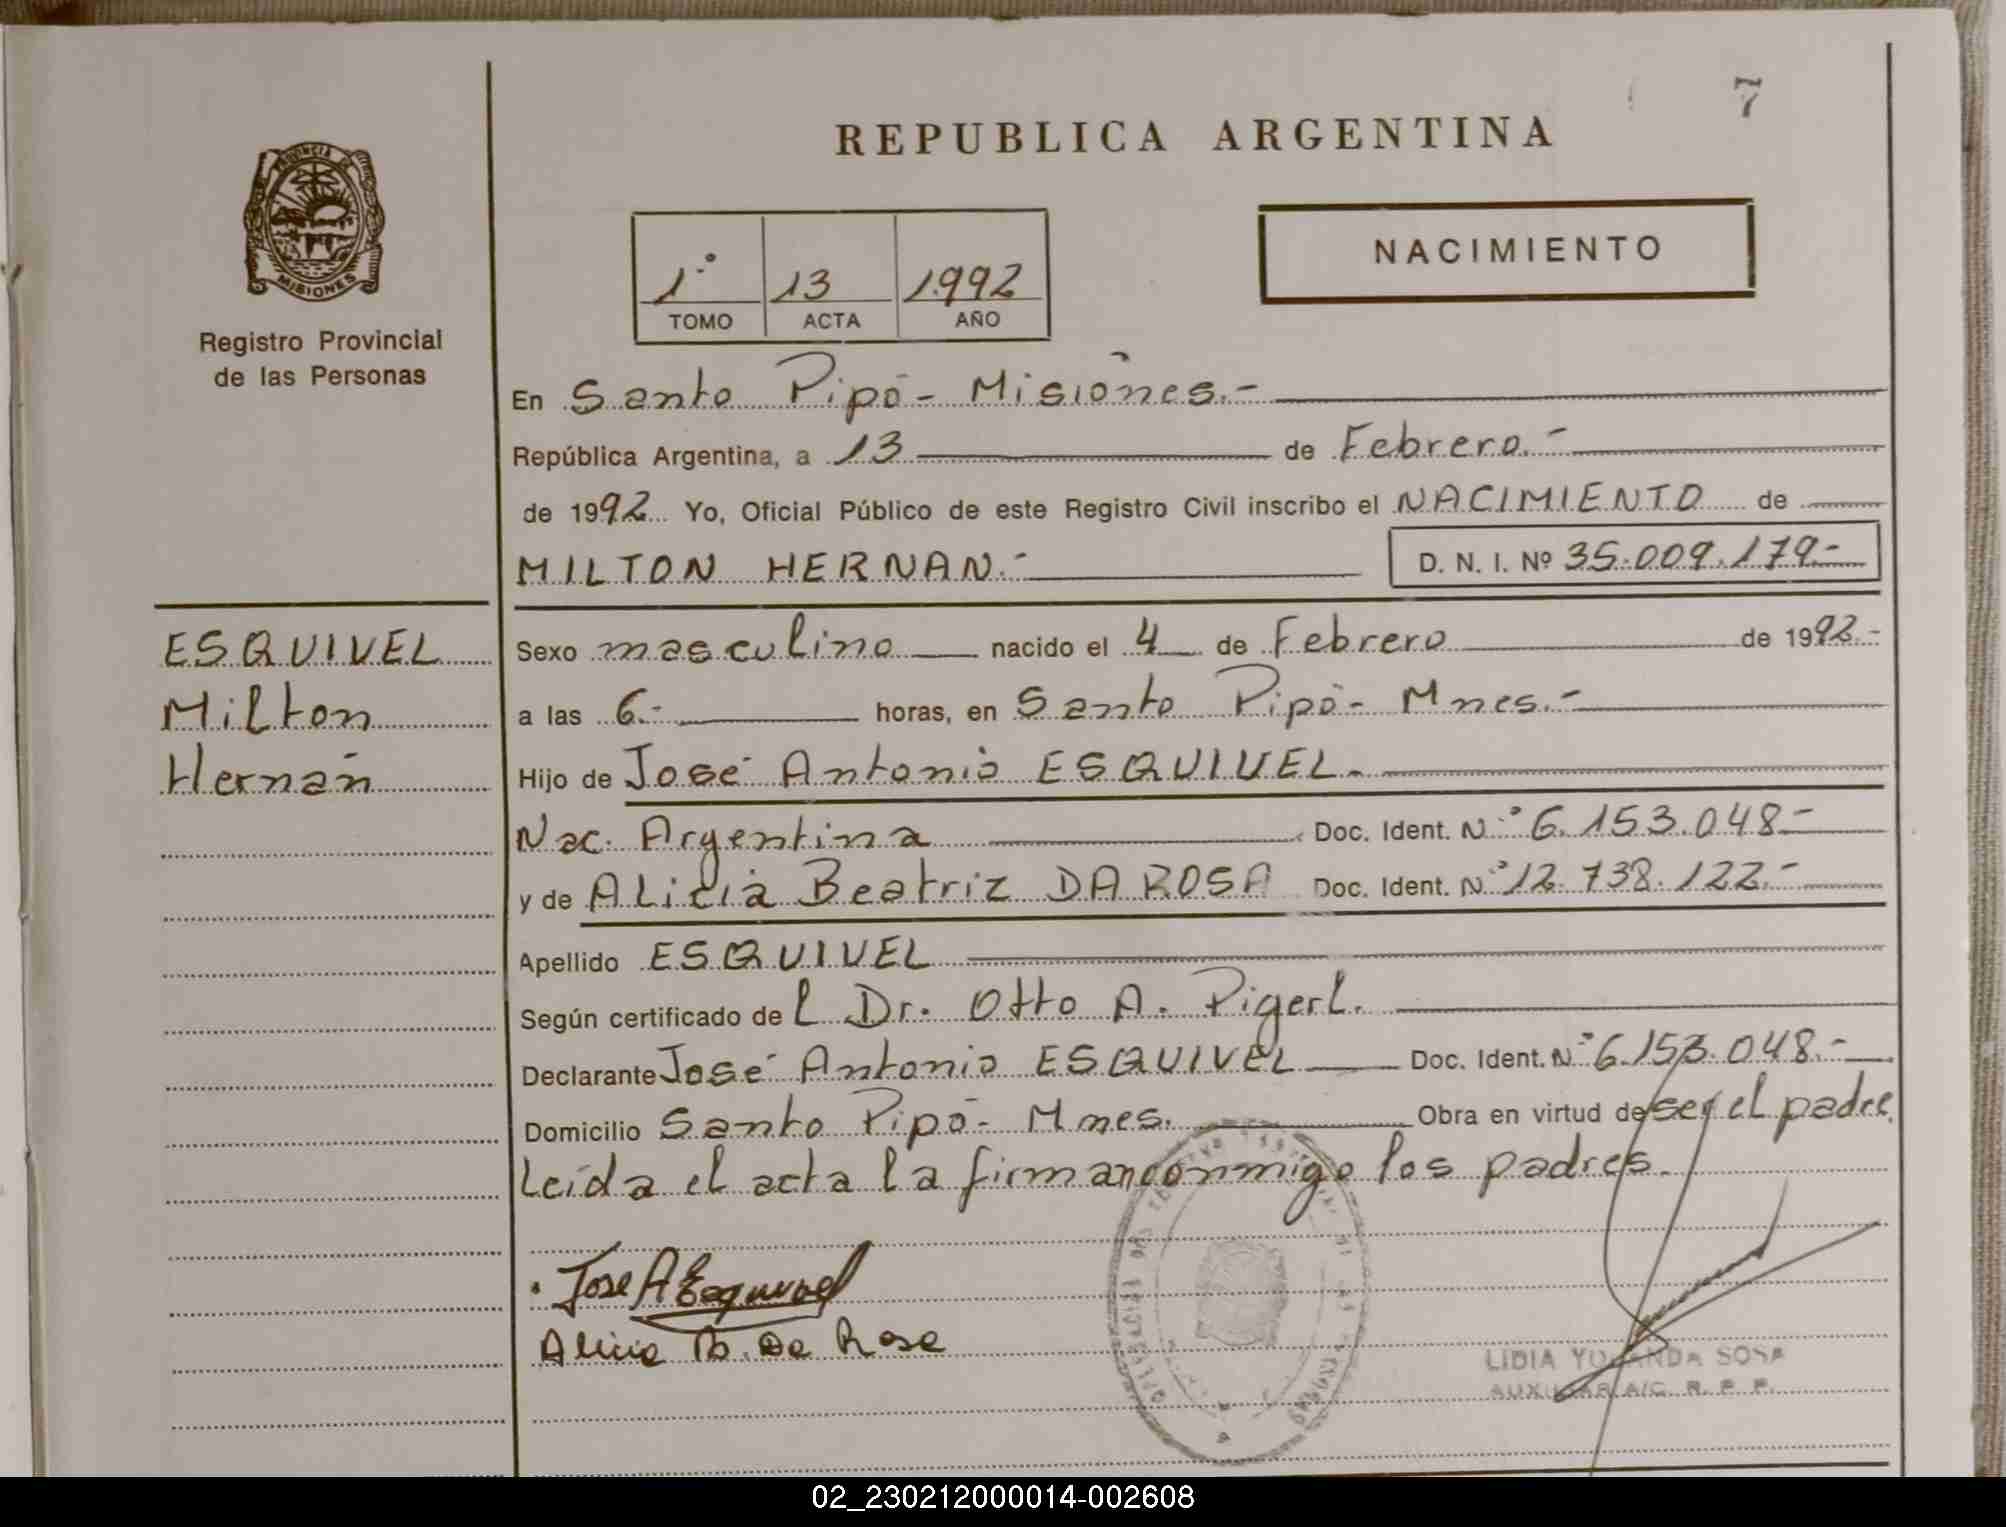 7
REPUBLICA ARGENTINA
PROVINCIA DE
MISIONES
Registro Provincial
de las Personas
1º 13 1.992
TOMO ACTA AÑO
NACIMIENTO
En Santo Pipó - Misiones.-
República Argentina, a 13 de Febrero.-
de 1992 Yo, Oficial Público de este Registro Civil inscribo el NACIMIENTO de
MILTON HERNAN.-
D. N. I. Nº 35.009.179-
ESQUIVEL
Milton
Hernán
Sexo masculino nacido el 4 de Febrero de 1992.-
a las 6.- horas, en Santo Pipó - Mnes.-
Hijo de José Antonio ESQUIVEL.-
Nac. Argentina Doc. Ident. Nº 6.153.048-
y de Alicia Beatriz DA ROSA Doc. Ident. Nº 12.738.122.-
Apellido ESQUIVEL
Según certificado del Dr. Otto A. Pigerl.
Declarante José Antonio ESQUIVEL Doc. Ident. Nº 6.153.048.-
Domicilio Santo Pipó - Mnes. Obra en virtud de ser el padre.
Leída el acta la firman conmigo los padres.
Jose A Esquivel
Alicia B. Da Rosa
LIDIA YOLANDA SOSA
AUXILIAR A/C. R. P. P.
02_230212000014-002608